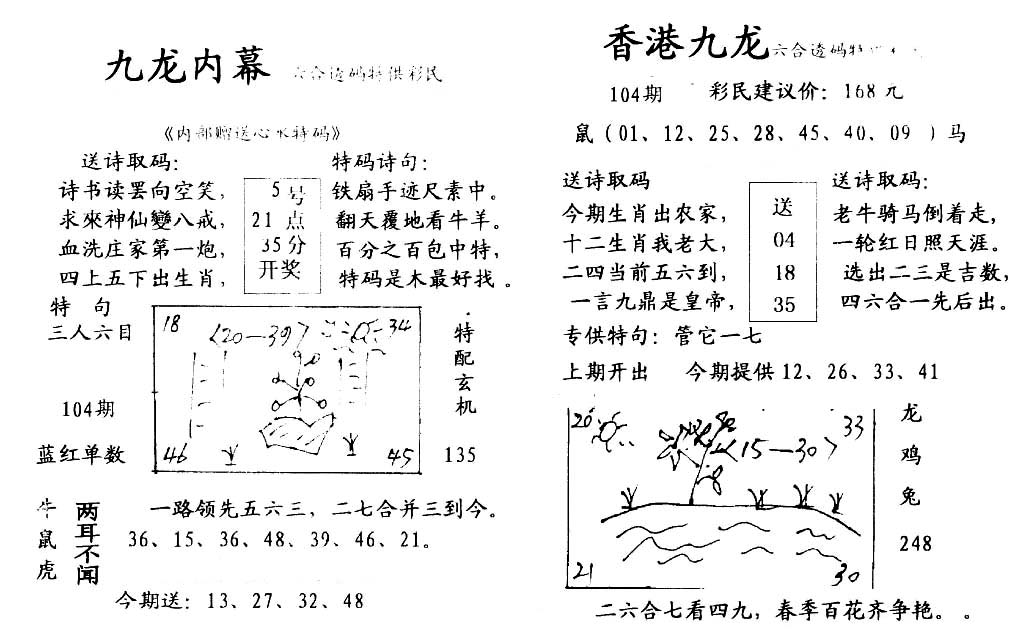 九龙内幕 六合透码特供彩民
《内部赠送心水特码》
送诗取码：
诗书读罢向空笑，
求來神仙變八戒，
血洗庄家第一炮，
四上五下出生肖，
5号
21点
35分
开奖
特码诗句：
铁扇手迹尺素中。
翻天覆地看牛羊。
百分之百包中特，
特码是木最好找。
特 句
三人六目
104期
蓝红单数
18
〈20—39〉
34
46
45
特
配
玄
机
135
牛
鼠
虎
两耳不闻
一路领先五六三，二七合并三到今。
36、15、36、48、39、46、21。
今期送：13、27、32、48
香港九龙 六合透码特
104期 彩民建议价：168元
鼠（01、12、25、28、45、40、09 ）马
送诗取码
今期生肖出农家，
十二生肖我老大，
二四当前五六到，
一言九鼎是皇帝，
送
04
18
35
送诗取码：
老牛骑马倒着走，
一轮红日照天涯。
选出二三是吉数，
四六合一先后出。
专供特句：管它一七
上期开出 今期提供12、26、33、41
20
33
〈15—30〉
21
30
龙
鸡
兔
248
二六合七看四九，春季百花齐争艳。 。